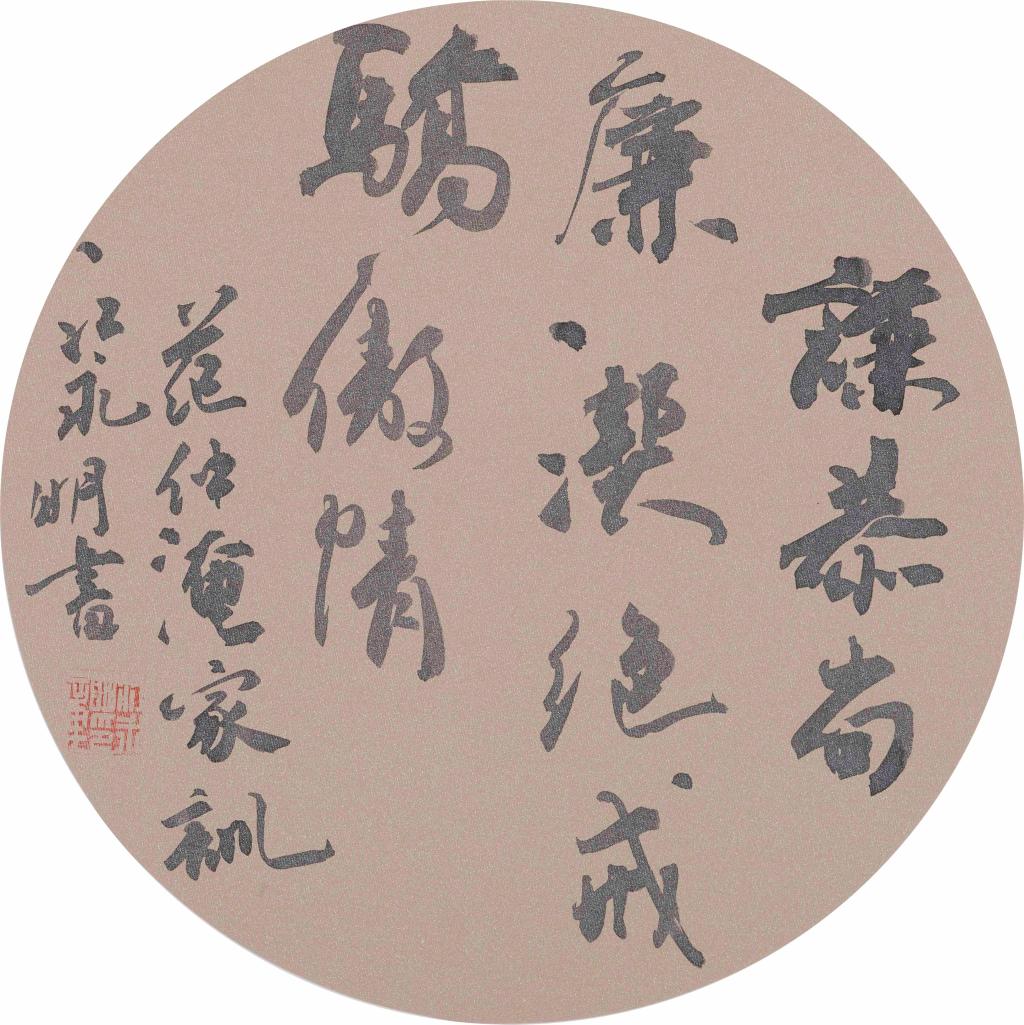 謙恭尚
廉潔絕戒
驕傲情
范仲淹家訓
永明書